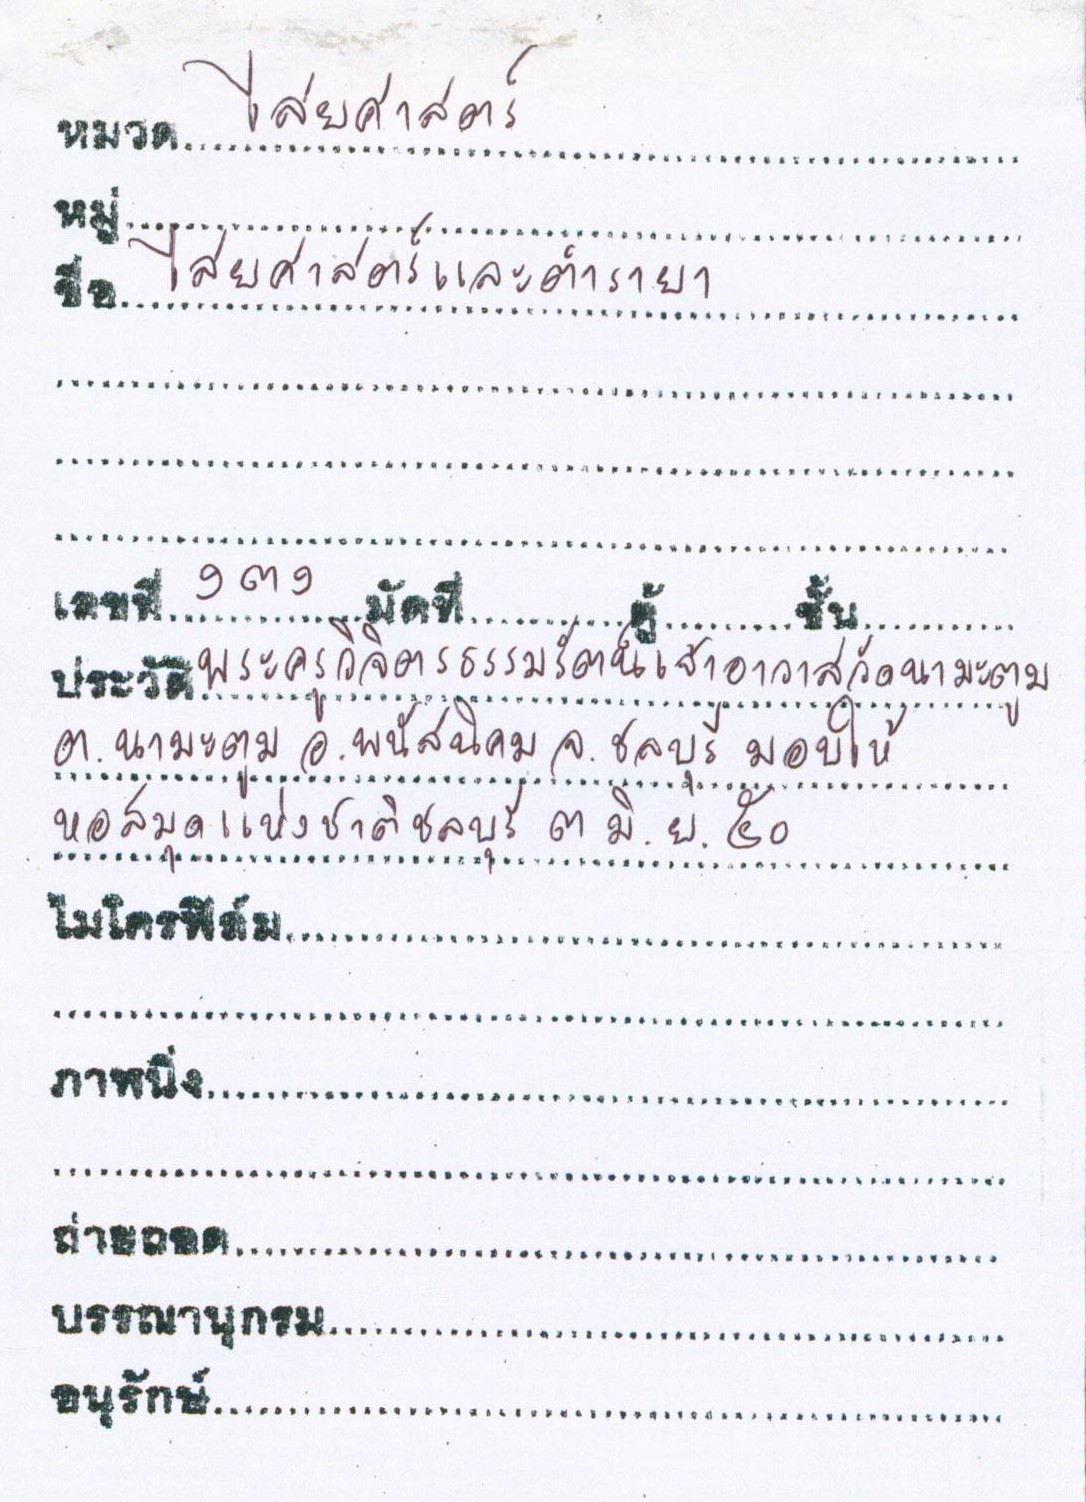 หมวด ไสยศาสตร์
หมู่
ชื่อ ไสยศาสตร์และตำรายา
เลขที่ ๑๓๑ มัดที่ ตู้ ชั้น
ประวัติ พระครูวิจิตรธรรมรัตน์เจ้าอาวาสวัดนามะตูม
ต.นามะตูม อ.พนัสนิคม จ.ชลบุรี มอบให้
หอสมุดแห่งชาติชลบุรี ๓ มิ.ย. ๕๐
ไมโครฟิล์ม
ภาพนิ่ง
ถ่ายถอด
บรรณานุกรม
อนุรักษ์